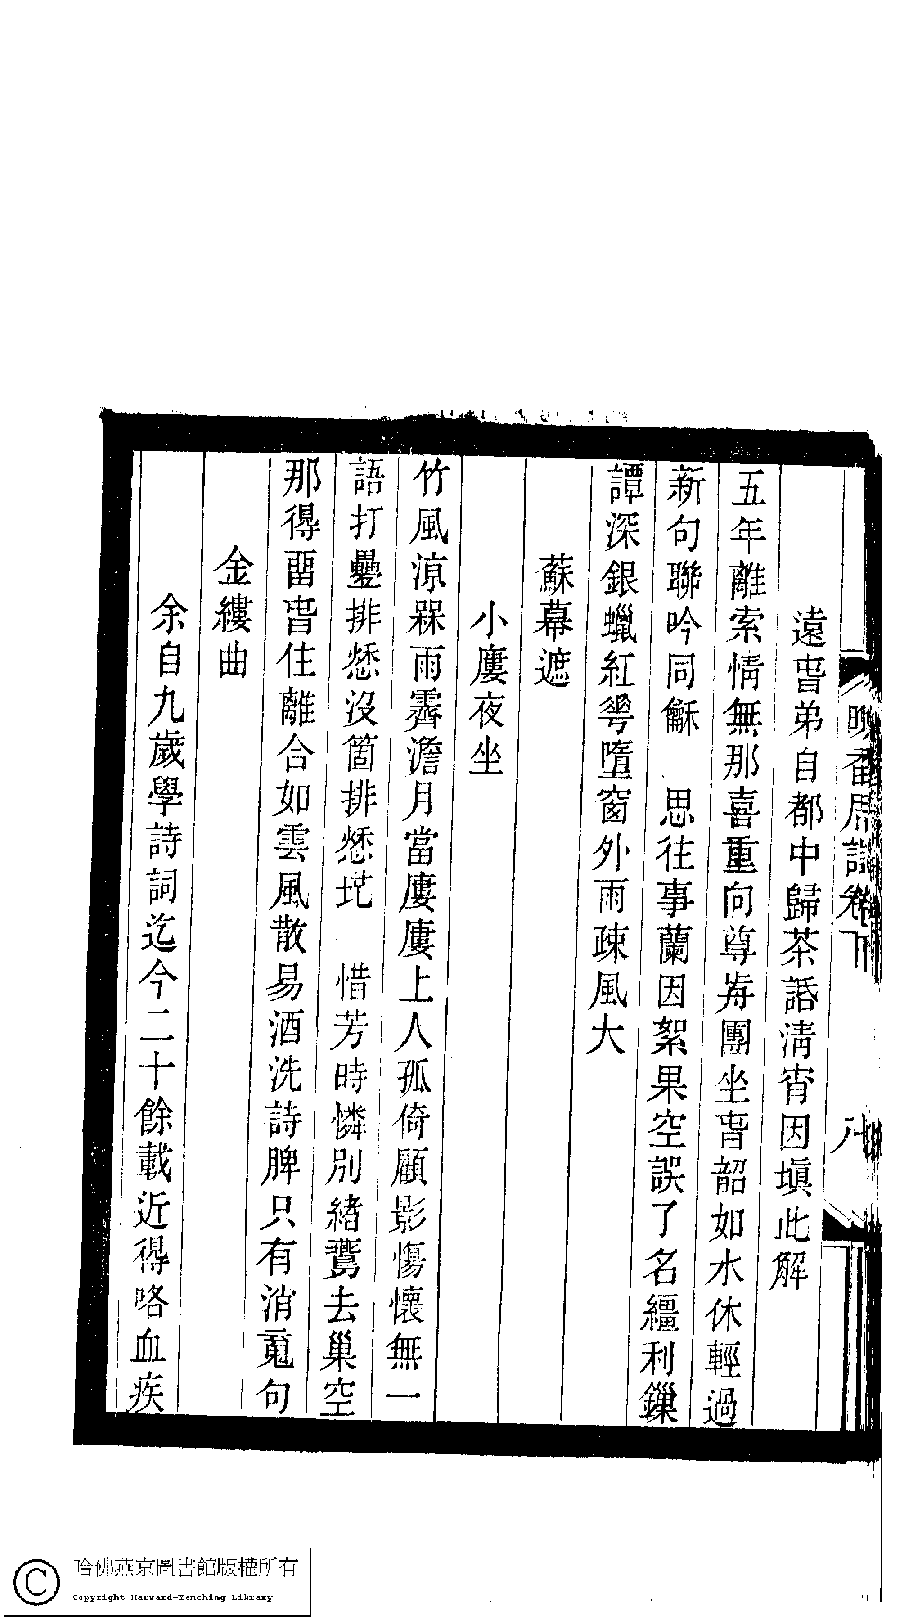 遠峕弟自都中歸茶話淸宵因塡此解
五年離索情無那喜重向尊歬團坐峕韶如水休輕過
新句聯吟同龢 思往事蘭因絮果空誤了名繮利鏁
譚深銀蠟紅雩墮窗外雨疎風大
蘇幕遮
小廔夜坐
竹風涼槑雨霽澹月當廔廔上人孤倚顧影傷懷無一
語打疊排愁沒箇排愁処 惜芳時憐別緒鷰去巢空
那得畱峕住離合如雲風散易酒洗詩脾只有消䰟句
金縷曲
余自九歲學詩詞迄今二十餘載近得咯血疾
晚香居詞卷下
八
哈佛燕京圖書館版權所有
Copyright Harvard-Yenching Library